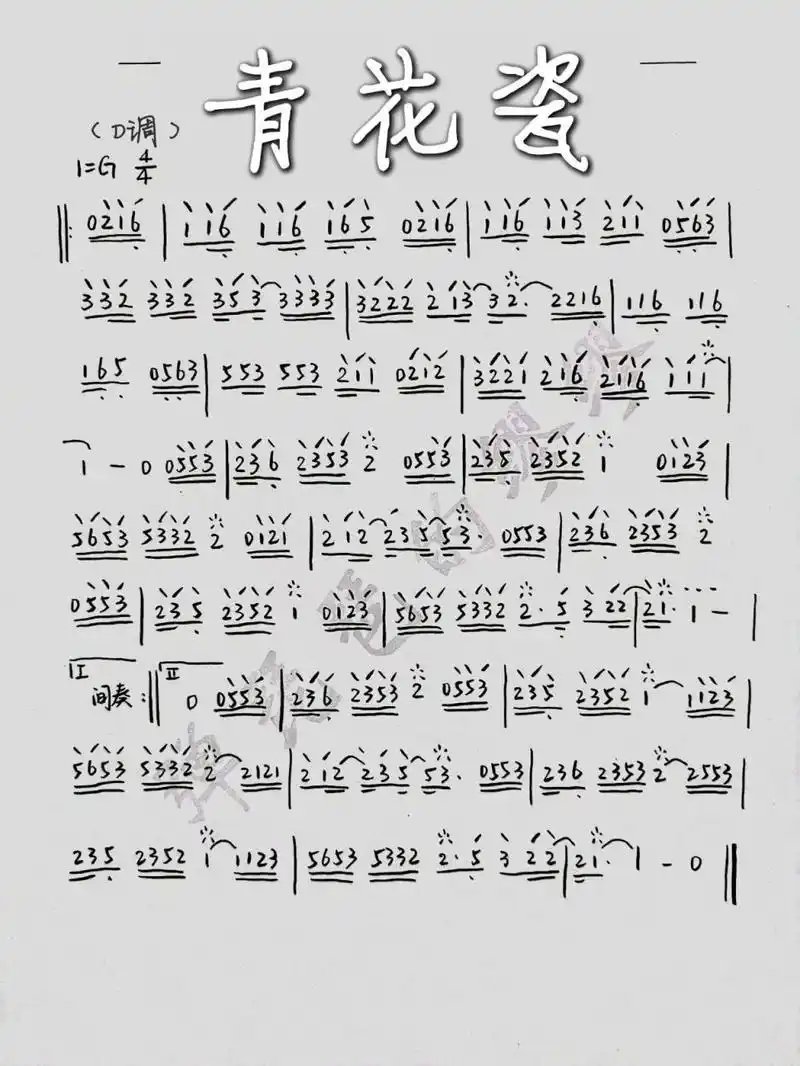 青花瓷
(D调)
1=G 4/4
‖: 0216 | 116 116 165 0216 | 116 113 211 0563 |
332 332 353 3333 | 3222 213 32. 2216 | 116 116
165 0563 | 553 553 211 0212 | 3221 216 2116 111 |
1 - 0 0553 | 236 2353 2 0553 | 235 2352 1 0123 |
5653 5332 2 0121 | 212 235 53. 0553 | 236 2353 2
0553 | 235 2352 1 0123 | 5653 5332 2. 5 3 22 | 21. 1 - |
I 间奏 :‖ II 0 0553 | 236 2353 2 0553 | 235 2352 1 1123 |
5653 5332 2 2121 | 212 235 53. 0553 | 236 2353 2 2553 |
235 2352 1 1123 | 5653 5332 2. 5 3 22 | 21. 1 - 0 ‖